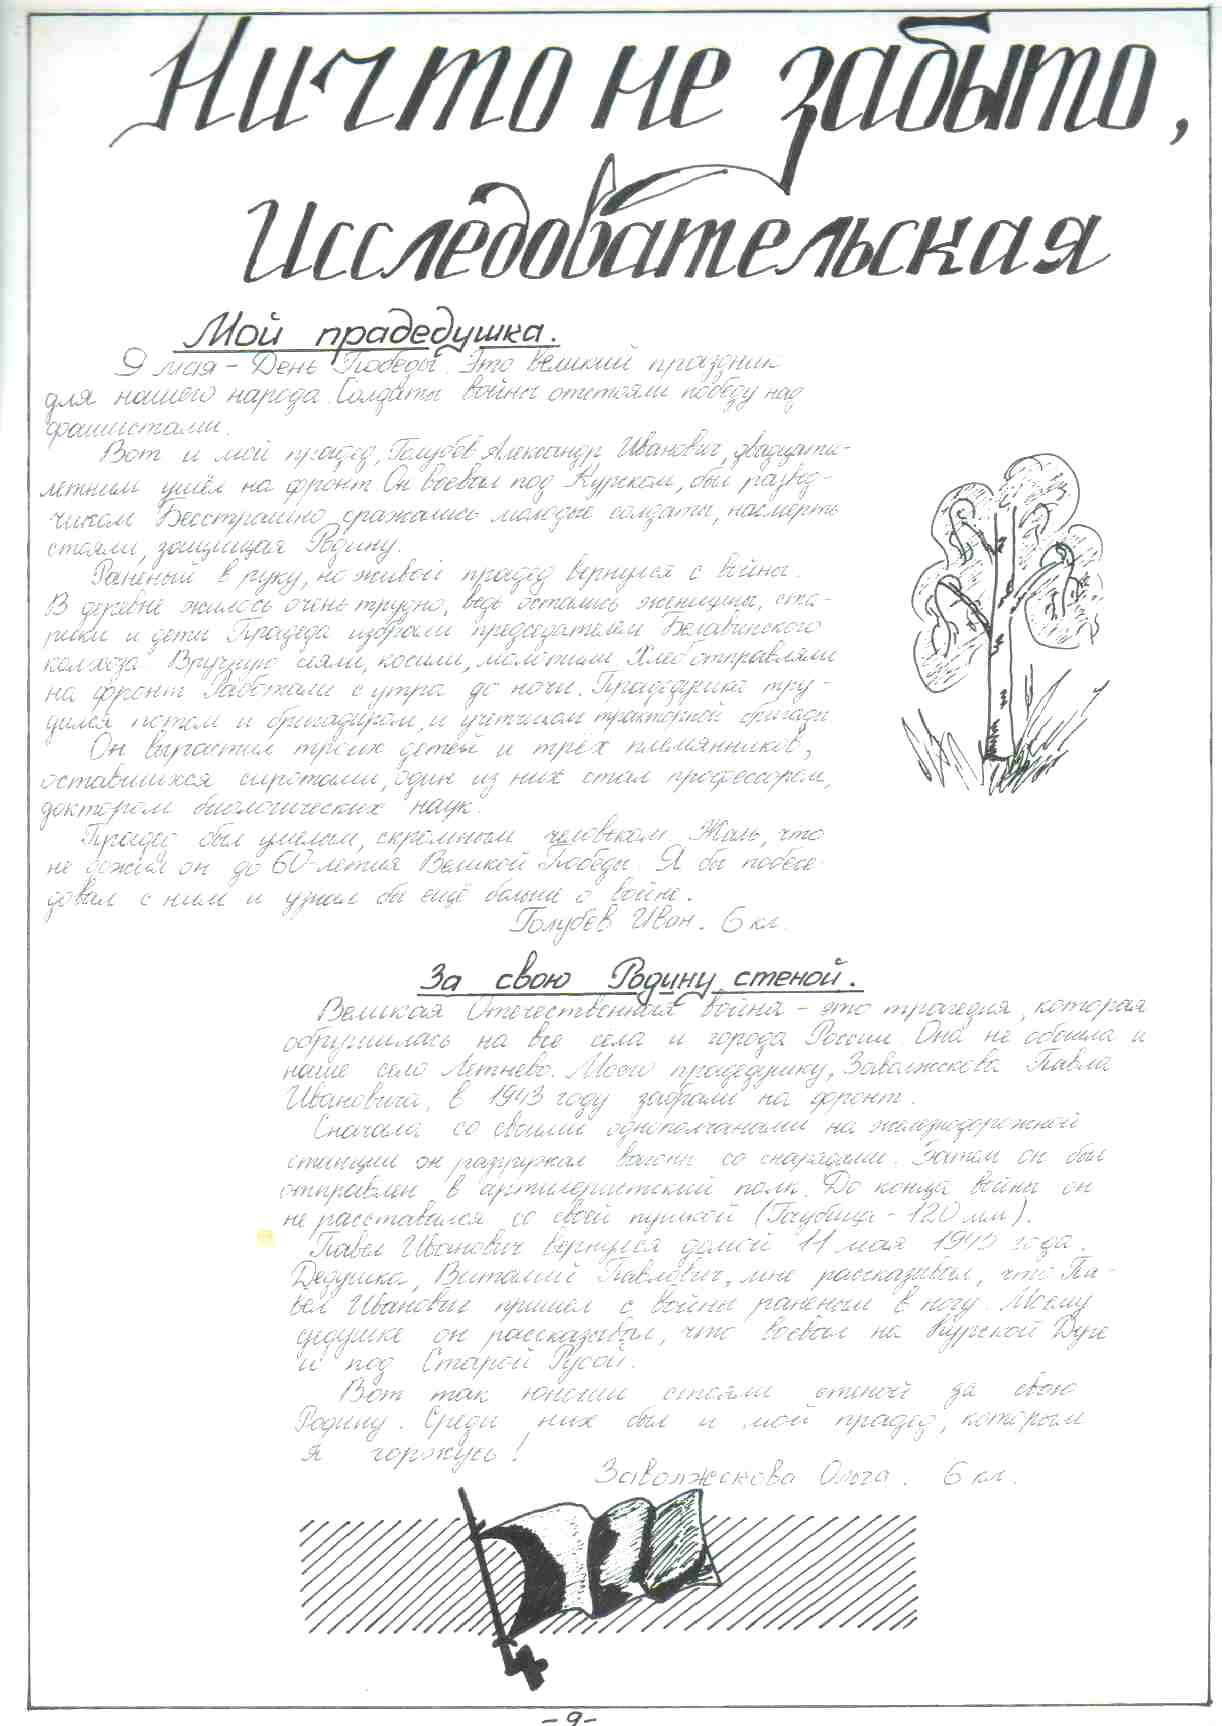 Ничто не забыто,
Исследовательская
Мой прадедушка.
9 мая – День Победы. Это великий праздник
для нашего народа. Солдаты войны отстояли победу над
фашистами.
Вот и мой прадед, Голубев Александр Иванович, двадцати-
летним ушёл на фронт. Он воевал под Курском, был развед-
чиком. Бесстрашно сражались молодые солдаты, насмерть
стояли, защищая Родину.
Раненый в руку, но живой прадед вернулся с войны.
В деревне жилось очень трудно, ведь остались женщины, ста-
рики и дети. Прадеда избрали председателем Белавинского
колхоза. Вручную сеяли, косили, молотили. Хлеб отправляли
на фронт. Работали с утра до ночи. Прадедушка тру-
дился потом и бригадиром, и учётчиком тракторной бригады.
Он вырастил троих детей и трёх племянников,
оставшихся сиротами, один из них стал профессором,
доктором биологических наук.
Прадед был умелым, скромным человеком. Жаль, что
не дожил он до 60-летия Великой Победы. Я бы побесе-
довал с ним и узнал бы ещё больше о войне.
Голубев Иван. 6 кл.
За свою Родину стеной.
Великая Отечественная война – это трагедия, которая
обрушилась на все сёла и города России. Она не обошла и
наше село Летнево. Моего прадедушку, Заволжскова Павла
Ивановича, в 1943 году забрали на фронт.
Сначала со своими однополчанами на железнодорожной
станции он разгружал вагоны со снарядами. Затем он был
отправлен в артилеристский полк. До конца войны он
не расставался со своей пушкой (Гаубица – 120 мм).
Павел Иванович вернулся домой 11 мая 1945 года.
Дедушка, Виталий Павлович, мне рассказывал, что Па-
вел Иванович пришел с войны раненым в ногу. Моему
дедушке он рассказывал, что воевал на Курской Дуге
и под Старой Русой.
Вот так юноши стояли стеной за свою
Родину. Среди них был и мой прадед, которым
я горжусь!
Заволжскова Ольга. 6 кл.
-9-